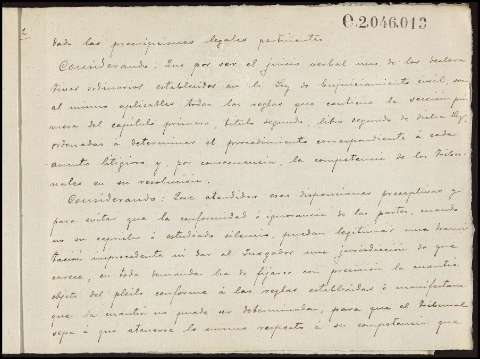 O.2.046.013
dado las prescripciones legales pertinentes
Considerando: Que por ser el juicio verbal uno de los declara
tivos ordinarios establecidos en la Ley de Enjuiciamiento civil, son
al mismo aplicables todas las reglas que contiene la sección pri
mera del capítulo primero, título segundo, libro segundo de dicha Ley,
ordenadas á determinar el procedimiento correspondiente á cada
asunto litigioso y, por consecuencia, la competencia de los Tribu
nales en su resolución.
Considerando: Que atendidas esas disposiciones preceptivas y
para evitar que la conformidad ó ignorancia de las partes, cuando
no su expreso ó estudiado silencio, puedan legitimar una trami
tación improcedente ni dar al Juzgador una jurisdicción de que
carece, en toda demanda ha de fijarse con precisión la cuantía
objeto del pleito conforme á las reglas establecidas ó manifestarse
que la cuantía no puede ser determinada, para que el Tribunal
sepa á qué atenerse lo mismo respecto á su competencia que